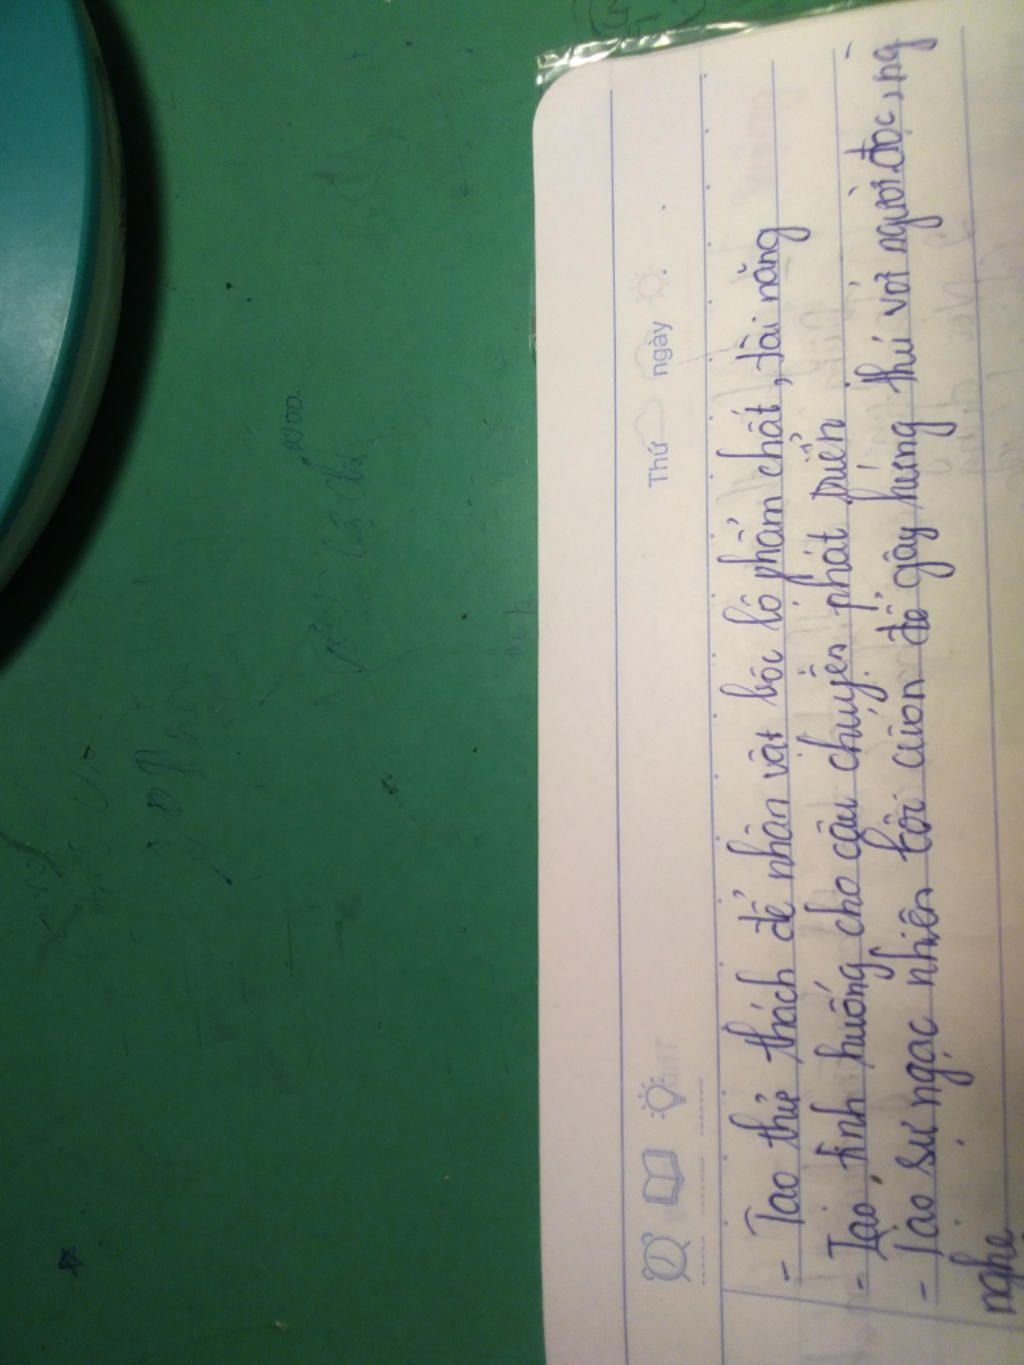 Thứ ngày
- Tạo thử thách để nhân vật bộc lộ phẩm chất, tài năng
- Tạo tình huống cho câu chuyện phát triển
- Tạo sự ngạc nhiên lôi cuốn để gây hứng thú với người đọc, ng
nghe